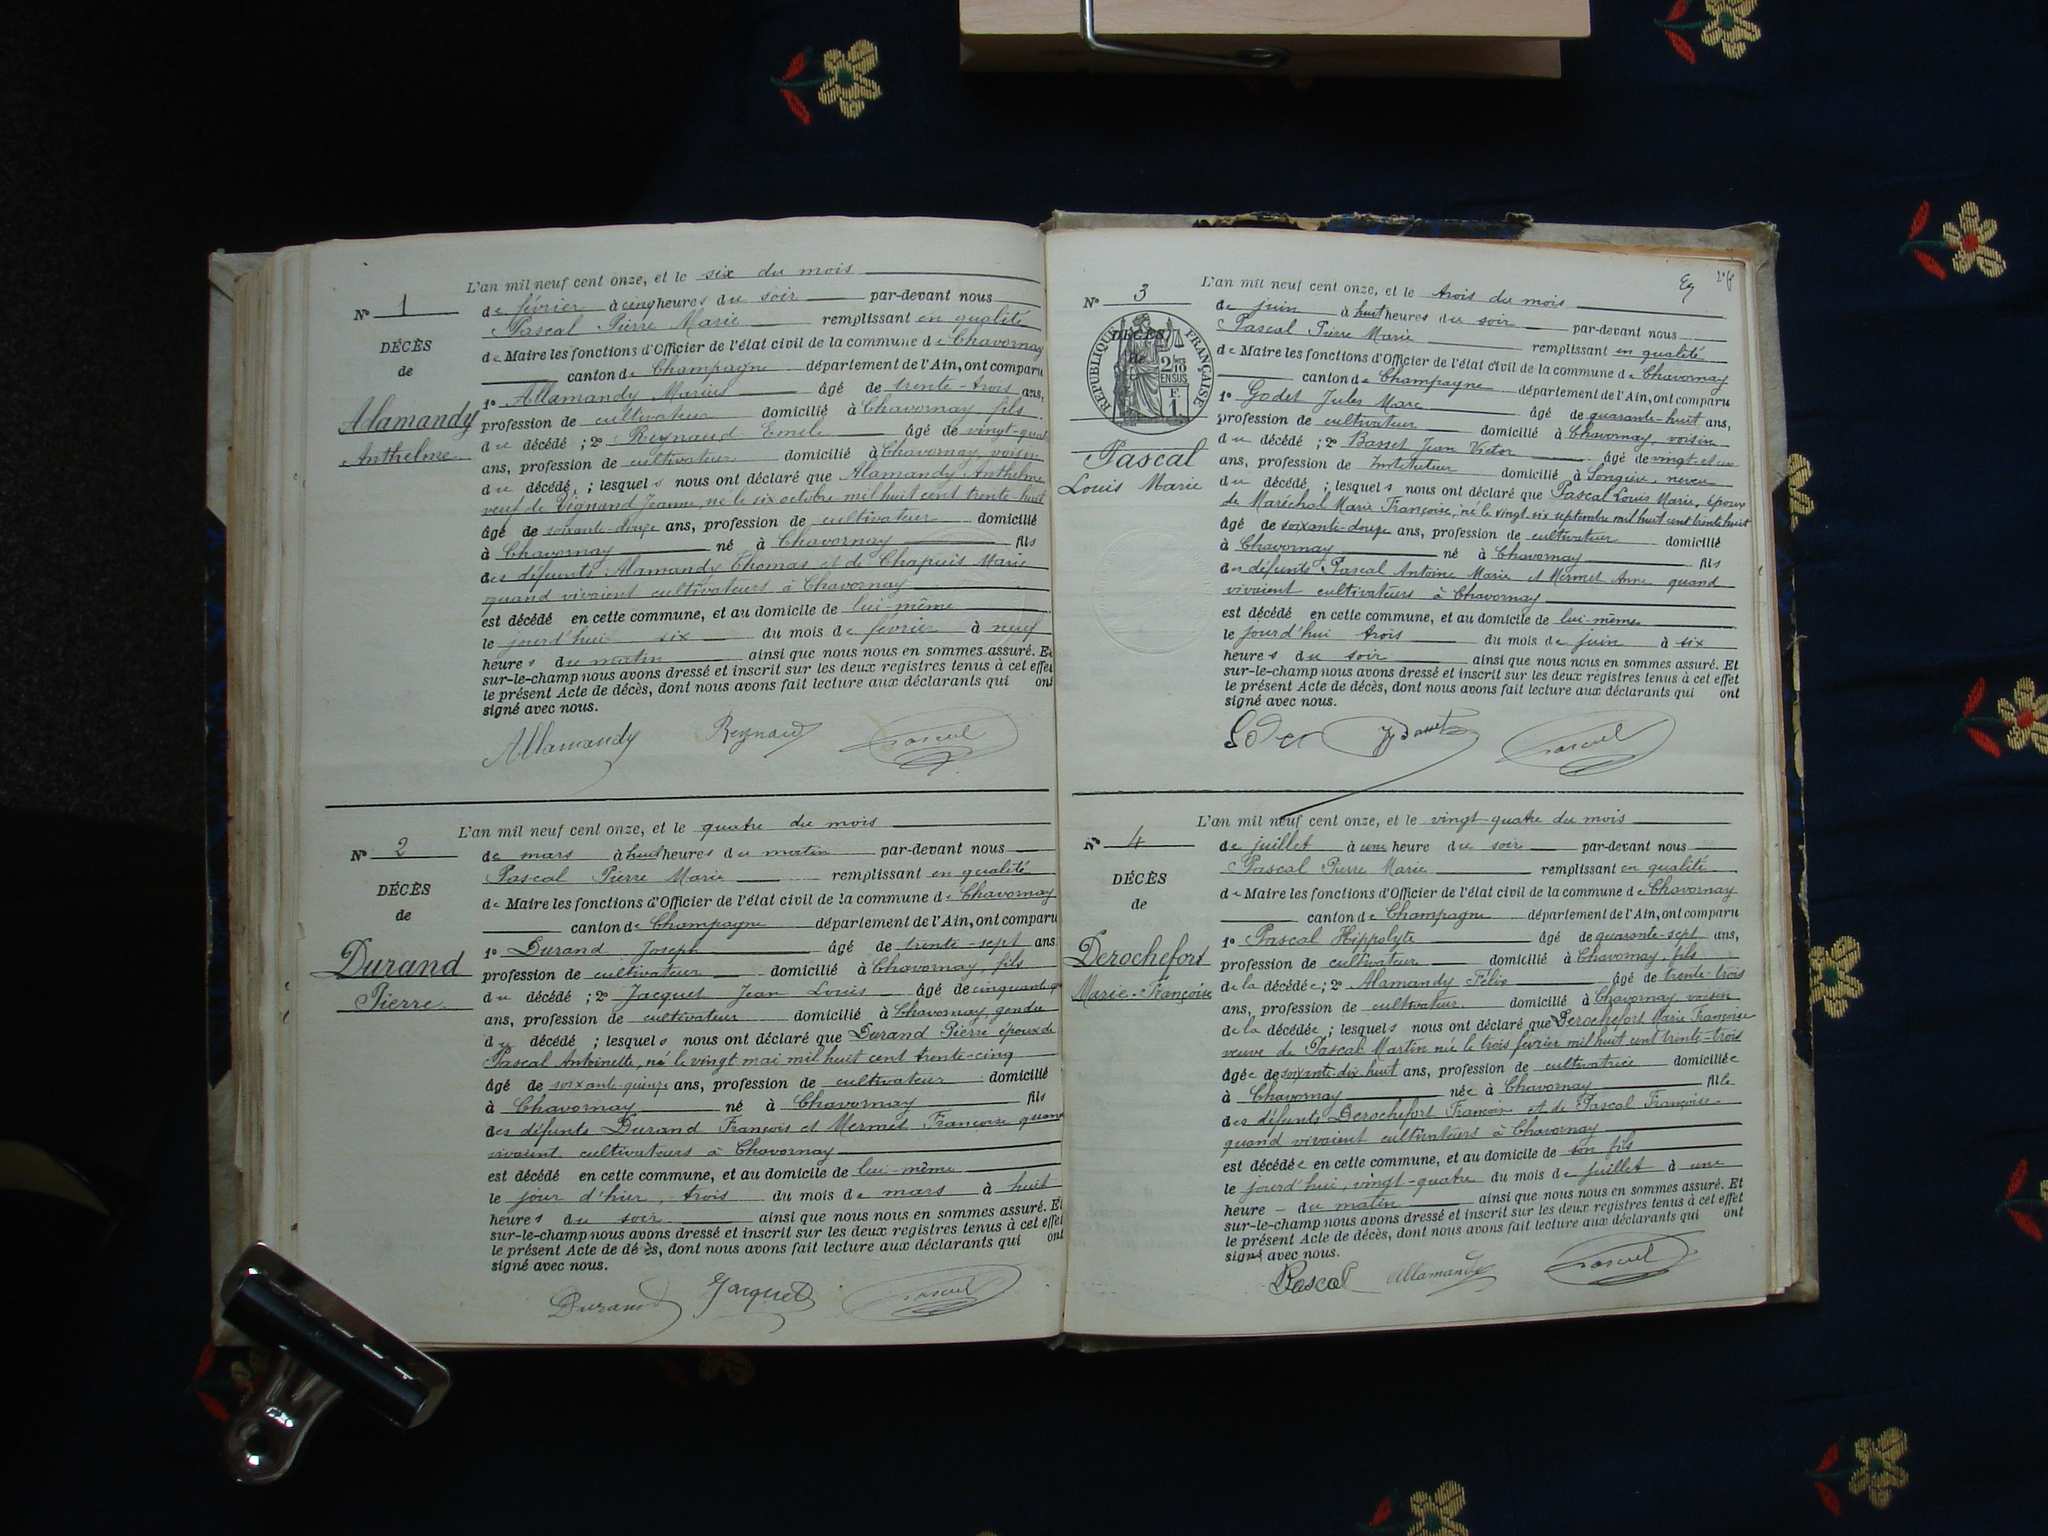 L'an mil neuf cent onze, et le six du mois
N° 1
de février à cinq heures du soir par-devant nous
Pascal Pierre Marie remplissant en qualité
DÉCÈS
de Maire les fonctions d'Officier de l'état civil de la commune de Chavornay
de
canton de Champagne département de l'Ain, ont comparu
1° Allamandy Marius âgé de trente-trois ans,
Alamandy
profession de cultivateur domicilié à Chavornay fils
Anthelme
du décédé ; 2° Reynaud Emile âgé de vingt-quat
ans, profession de cultivateur domicilié à Chavornay, voisin
du décédé ; lesquels nous ont déclaré que Alamandy Anthelme
veuf de Vignand Jeanne, né le six octobre mil huit cent trente-huit
âgé de soixante-douze ans, profession de cultivateur domicilié
à Chavornay né à Chavornay fils
des défunts Alamandy Thomas et de Chapuis Marie
quand vivaient cultivateurs à Chavornay
est décédé en cette commune, et au domicile de lui-même
le jourd'hui six du mois de février à neuf
heures du matin ainsi que nous nous en sommes assuré. Et
sur-le-champ nous avons dressé et inscrit sur les deux registres tenus à cet effet
le présent Acte de décès, dont nous avons fait lecture aux déclarants qui ont
signé avec nous.
Allamandy Reynaud Pascal
L'an mil neuf cent onze, et le quatre du mois
N° 2
de mars à huit heures du matin par-devant nous
Pascal Pierre Marie remplissant en qualité
DÉCÈS
de Maire les fonctions d'Officier de l'état civil de la commune de Chavornay
de
canton de Champagne département de l'Ain, ont comparu
1° Durand Joseph âgé de trente-sept ans
Durand
profession de cultivateur domicilié à Chavornay, fils
Pierre
du décédé ; 2° Jacquet Jean Louis âgé de cinquante
ans, profession de cultivateur domicilié à Chavornay, gendre
du décédé ; lesquels nous ont déclaré que Durand Pierre époux de
Pascal Antoinette, né le vingt mai mil huit cent trente-cinq
âgé de soixante-quinze ans, profession de cultivateur domicilié
à Chavornay né à Chavornay fils
des défunts Durand François et Mermet Françoise quand
vivaient cultivateurs à Chavornay
est décédé en cette commune, et au domicile de lui-même
le jour d'hier, trois du mois de mars à huit
heures du soir ainsi que nous nous en sommes assuré. Et
sur-le-champ nous avons dressé et inscrit sur les deux registres tenus à cet effet
le présent Acte de décès, dont nous avons fait lecture aux déclarants qui ont
signé avec nous.
Durand Jacquet Pascal
L'an mil neuf cent onze, et le trois du mois
N° 3
de juin à huit heures du soir par-devant nous
Pascal Pierre Marie remplissant en qualité
RÉPUBLIQUE FRANÇAISE
DÉCÈS
de
2/10 EN SUS
F. 1.
de Maire les fonctions d'Officier de l'état civil de la commune de Chavornay
canton de Champagne département de l'Ain, ont comparu
1° Godet Jules Marc âgé de quarante-huit ans,
profession de cultivateur domicilié à Chavornay, voisin
Pascal
du décédé ; 2° Basset Jean Victor âgé de vingt-et-un
Louis Marie
ans, profession de Instituteur domicilié à Songieu, neveu
du décédé ; lesquels nous ont déclaré que Pascal Louis Marie, époux
de Maréchal Marie Françoise, né le vingt-six septembre mil huit cent trente huit
âgé de soixante-douze ans, profession de cultivateur domicilié
à Chavornay né à Chavornay fils
des défunts Pascal Antoine Marie et Mermet Anne quand
vivaient cultivateurs à Chavornay
est décédé en cette commune, et au domicile de lui-même
le jourd'hui trois du mois de juin à six
heures du soir ainsi que nous nous en sommes assuré. Et
sur-le-champ nous avons dressé et inscrit sur les deux registres tenus à cet effet
le présent Acte de décès, dont nous avons fait lecture aux déclarants qui ont
signé avec nous.
Godet Basset Pascal
L'an mil neuf cent onze, et le vingt-quatre du mois
N° 4
de juillet à une heure du soir par-devant nous
Pascal Pierre Marie remplissant en qualité
DÉCÈS
de Maire les fonctions d'Officier de l'état civil de la commune de Chavornay
de
canton de Champagne département de l'Ain, ont comparu
1° Pascal Hippolyte âgé de quarante-sept ans,
Derochefort
profession de cultivateur domicilié à Chavornay, fils
Marie-Françoise
de la décédée ; 2° Alamandy Félix âgé de trente-trois
ans, profession de cultivateur domicilié à Chavornay voisin
de la décédée ; lesquels nous ont déclaré que Derochefort Marie Françoise
veuve de Pascal Martin née le trois février mil huit cent trente-trois
âgée de soixante-dix huit ans, profession de cultivatrice domiciliée
à Chavornay née à Chavornay fille
des défunts Derochefort François et de Pascal Françoise
quand vivaient cultivateurs à Chavornay
est décédée en cette commune, et au domicile de son fils
le jourd'hui, vingt-quatre du mois de juillet à une
heure du matin ainsi que nous nous en sommes assuré. Et
sur-le-champ nous avons dressé et inscrit sur les deux registres tenus à cet effet
le présent Acte de décès, dont nous avons fait lecture aux déclarants qui ont
signé avec nous.
Pascal Allamandy Pascal